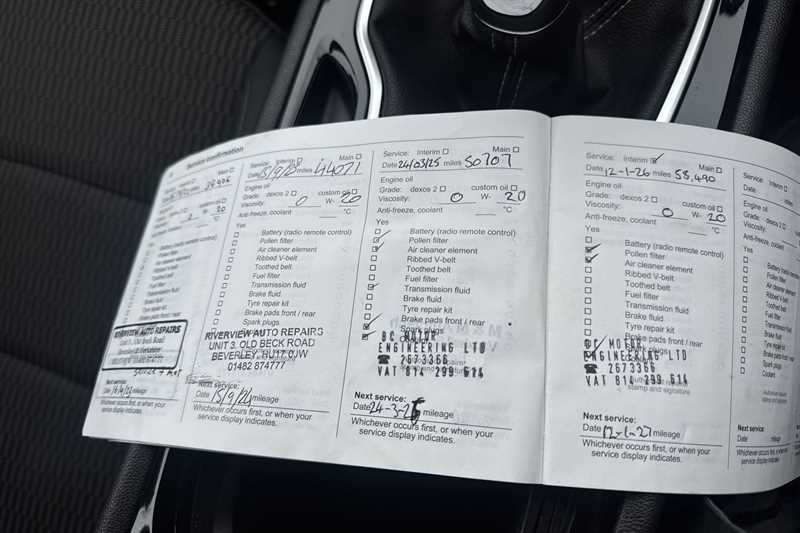 Service confirmation
Main
Engine oil
Grade: dexos 2 custom oil
Viscosity: W- 20
Anti-freeze, coolant °C
Yes
Battery (radio remote control)
Pollen filter
Air cleaner element
Ribbed V-belt
Toothed belt
Fuel filter
Transmission fluid
Brake fluid
Tyre repair kit
Brake pads front / rear
Spark plugs
RIVERVIEW AUTO REPAIRS
Unit 3, Old Beck Road
Next service:
Date mileage
Whichever occurs first, or when your
service display indicates.
Service: Interim Main
Date miles 44071
Engine oil
Grade: dexos 2 custom oil
Viscosity: 0 W- 20
Anti-freeze, coolant °C
Yes
Battery (radio remote control)
Pollen filter
Air cleaner element
Ribbed V-belt
Toothed belt
Fuel filter
Transmission fluid
Brake fluid
Tyre repair kit
Brake pads front / rear
Spark plugs
RIVERVIEW AUTO REPAIRS
UNIT 3. OLD BECK ROAD
BEVERLEY, HU17 0JW
01482 874777
Next service:
Date 15/9/24 mileage
Whichever occurs first, or when your
service display indicates.
Service: Interim Main
Date 24/03/25 miles 50707
Engine oil
Grade: dexos 2 custom oil
Viscosity: 0 W- 20
Anti-freeze, coolant °C
Yes
Battery (radio remote control)
Pollen filter
Air cleaner element
Ribbed V-belt
Toothed belt
Fuel filter
Transmission fluid
Brake fluid
Tyre repair kit
Brake pads front / rear
Spark plugs
BC MOTOR
ENGINEERING LTD
☎ 2673366
VAT 814 299 614
Next service:
Date 24-3-26 mileage
Whichever occurs first, or when your
service display indicates.
Service: Interim Main
Date 12-1-26 miles 58,490
Engine oil
Grade: dexos 2 custom oil
Viscosity: 0 W- 20
Anti-freeze, coolant °C
Yes
Battery (radio remote control)
Pollen filter
Air cleaner element
Ribbed V-belt
Toothed belt
Fuel filter
Transmission fluid
Brake fluid
Tyre repair kit
Brake pads front / rear
Spark plugs
MOTOR
ENGINEERING LTD
☎ 2673366
VAT 814 299 614
stamp and signature
Next service:
Date 12-1-27 mileage
Whichever occurs first, or when your
service display indicates.
Service: Interim
Date
Engine oil
Grade: dexos 2
Viscosity:
Anti-freeze, coolant
Yes
Battery (radio remote
Pollen filter
Air cleaner element
Ribbed V-belt
Toothed belt
Fuel filter
Transmission fluid
Brake fluid
Tyre repair kit
Brake pads front / rear
Spark plugs
Coolant
Next service:
Date mileage
Whichever occurs first, or
service display indicates.